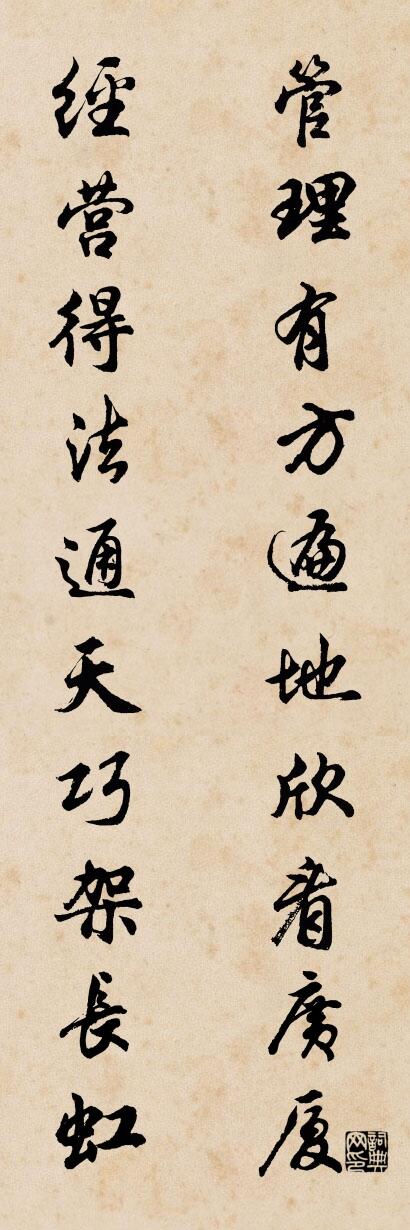 管理有方遍地欣看廣厦
經营得法通天巧架長虹
詞典网印